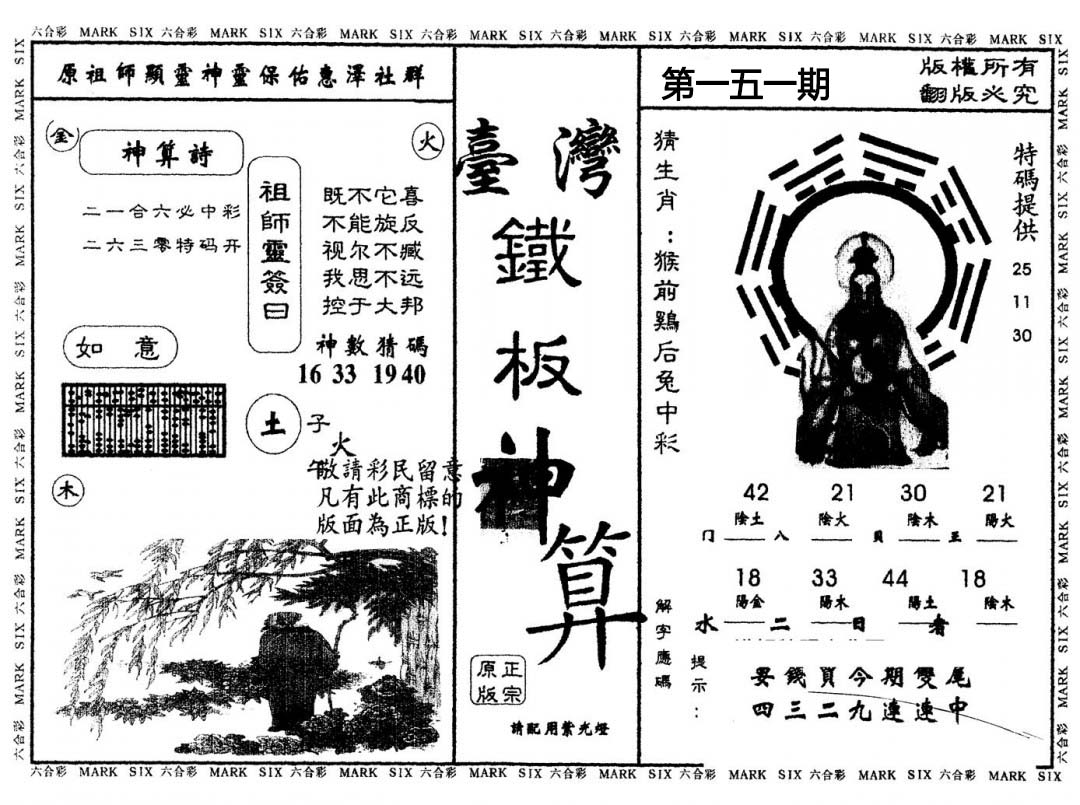 六合彩 MARK SIX 六合彩 MARK SIX 六合彩 MARK SIX 六合彩 MARK SIX 六合彩 MARK SIX 六合彩 MARK SIX 六合彩 MARK SIX 六合彩 MARK SIX
原祖師顯靈神靈保佑惠澤社群
金
火
神算詩
二一合六必中彩
二六三零特码开
祖師靈簽曰
既不它喜
不能旋反
视尔不臧
我思不远
控于大邦
神數猜碼
16 33 19 40
如 意
土
子
火
午
木
敬請彩民留意
凡有此商標的
版面為正版!
臺灣
鐵板神算
正宗
原版
請配用紫光燈
第一五一期
版權所有
翻版必究
猜生肖:猴前鷄后兔中彩
特碼提供
25
11
30
42 21 30 21
陰土 陰火 陰木 陽火
门 八 貝 王
18 33 44 18
陽金 陽木 陽土 陰木
水 二 日 者
解字應碼
提示:
要錢買今期雙尾
四三二九連連中
六合彩 MARK SIX 六合彩 MARK SIX 六合彩 MARK SIX 六合彩 MARK SIX 六合彩 MARK SIX 六合彩 MARK SIX 六合彩 MARK SIX 六合彩 MARK SIX